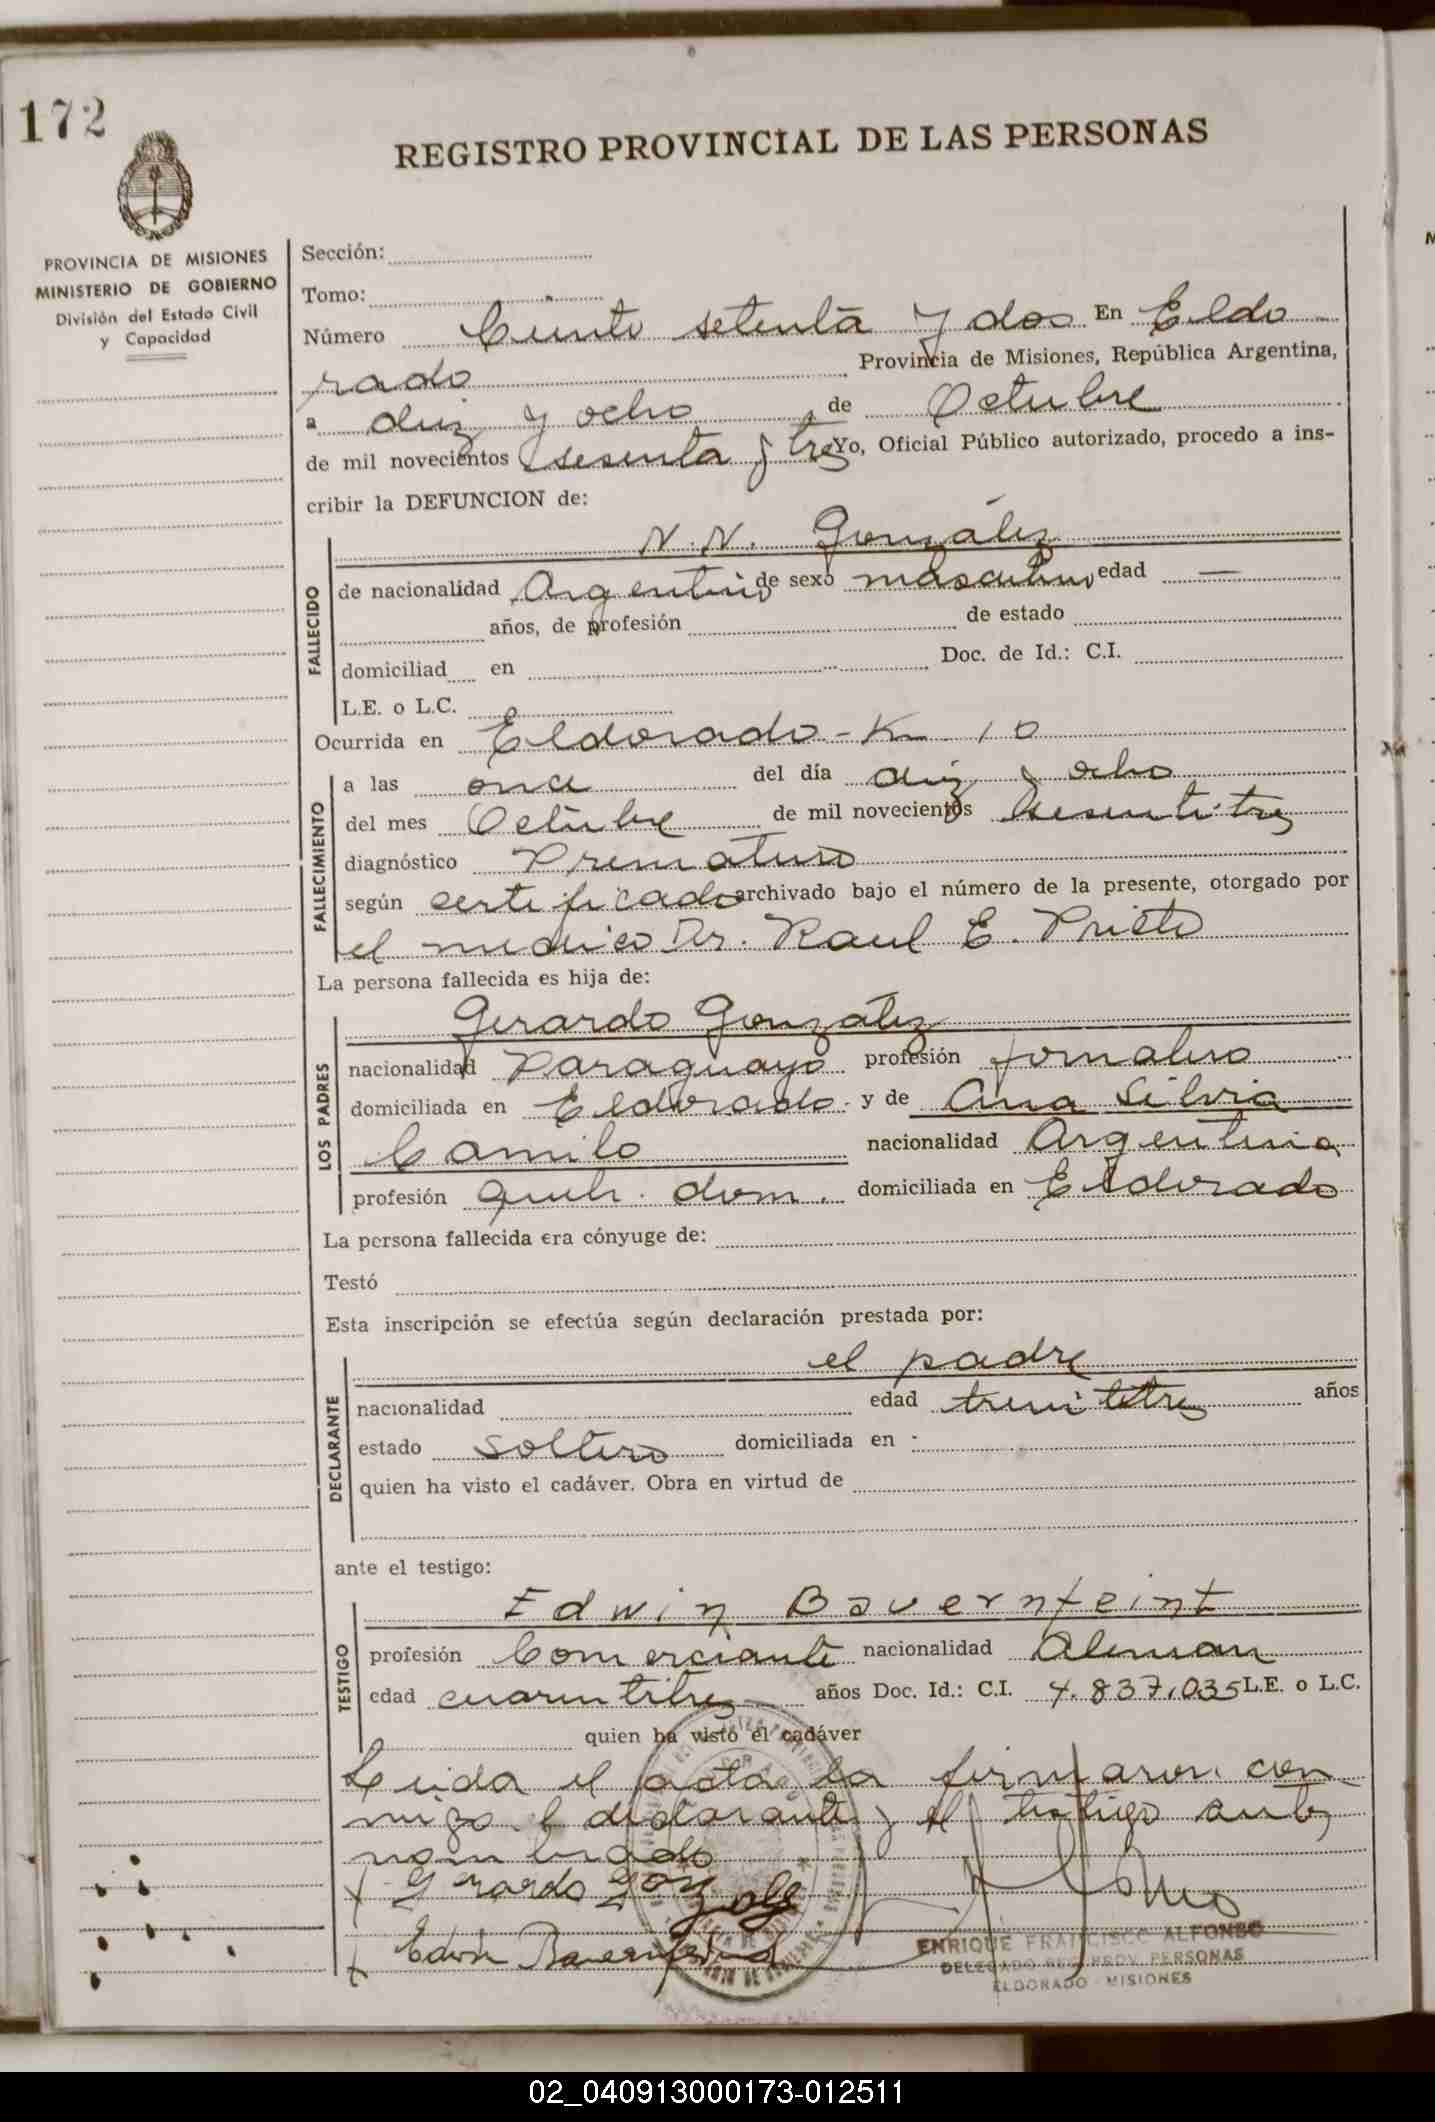 172
REGISTRO PROVINCIAL DE LAS PERSONAS
PROVINCIA DE MISIONES
MINISTERIO DE GOBIERNO
División del Estado Civil
y Capacidad
Sección:
Tomo:
Número Ciento setenta y dos En Eldo
rado Provincia de Misiones, República Argentina,
a diez y ocho de Octubre
de mil novecientos sesenta y tres Yo, Oficial Público autorizado, procedo a ins-
cribir la DEFUNCION de:
N. N. González
FALLECIDO
de nacionalidad Argentino de sexo masculino edad —
años, de profesión de estado
domiciliad en Doc. de Id.: C.I.
L.E. o L.C.
Ocurrida en Eldorado - Km 10
FALLECIMIENTO
a las once del día diez y ocho
del mes Octubre de mil novecientos sesentitres
diagnóstico Prematuro
según certificado archivado bajo el número de la presente, otorgado por
el medico Dr. Raul E. Prieto
La persona fallecida es hija de:
LOS PADRES
Gerardo González
nacionalidad Paraguayo profesión jornalero
domiciliada en Eldorado y de Ana Silvia
Camilo nacionalidad Argentina
profesión queh. dom. domiciliada en Eldorado
La persona fallecida era cónyuge de:
Testó
Esta inscripción se efectúa según declaración prestada por:
DECLARANTE
el padre
nacionalidad edad treintitres años
estado soltero domiciliada en
quien ha visto el cadáver. Obra en virtud de
ante el testigo:
TESTIGO
Edwin Bauernfeint
profesión Comerciante nacionalidad Aleman
edad cuarentitres años Doc. Id.: C.I. 4.837.035 L.E. o L.C.
quien ha visto el cadáver
Leida el acta la firmaron con
migo el declarante y el testigo ante
nombrado
x Gerardo Gonzalez
x Edwin Bauernfeind
ENRIQUE FRANCISCO ALFONSO
DELEGADO REG. PROV. PERSONAS
ELDORADO - MISIONES
02_040913000173-012511